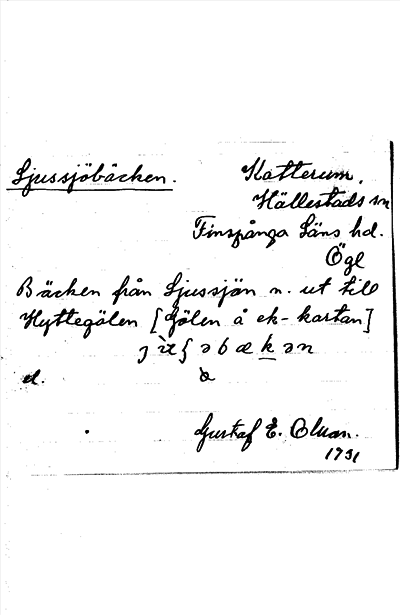 Ljussjöbäcken.
Katterum,
Hällestads sn
Finspånga Läns hd.
Ögl
Bäcken från Ljussjön n. ut till
Hyttegölen [Gölen å ek-kartan]
el.
Gustaf E. Olson.
1931